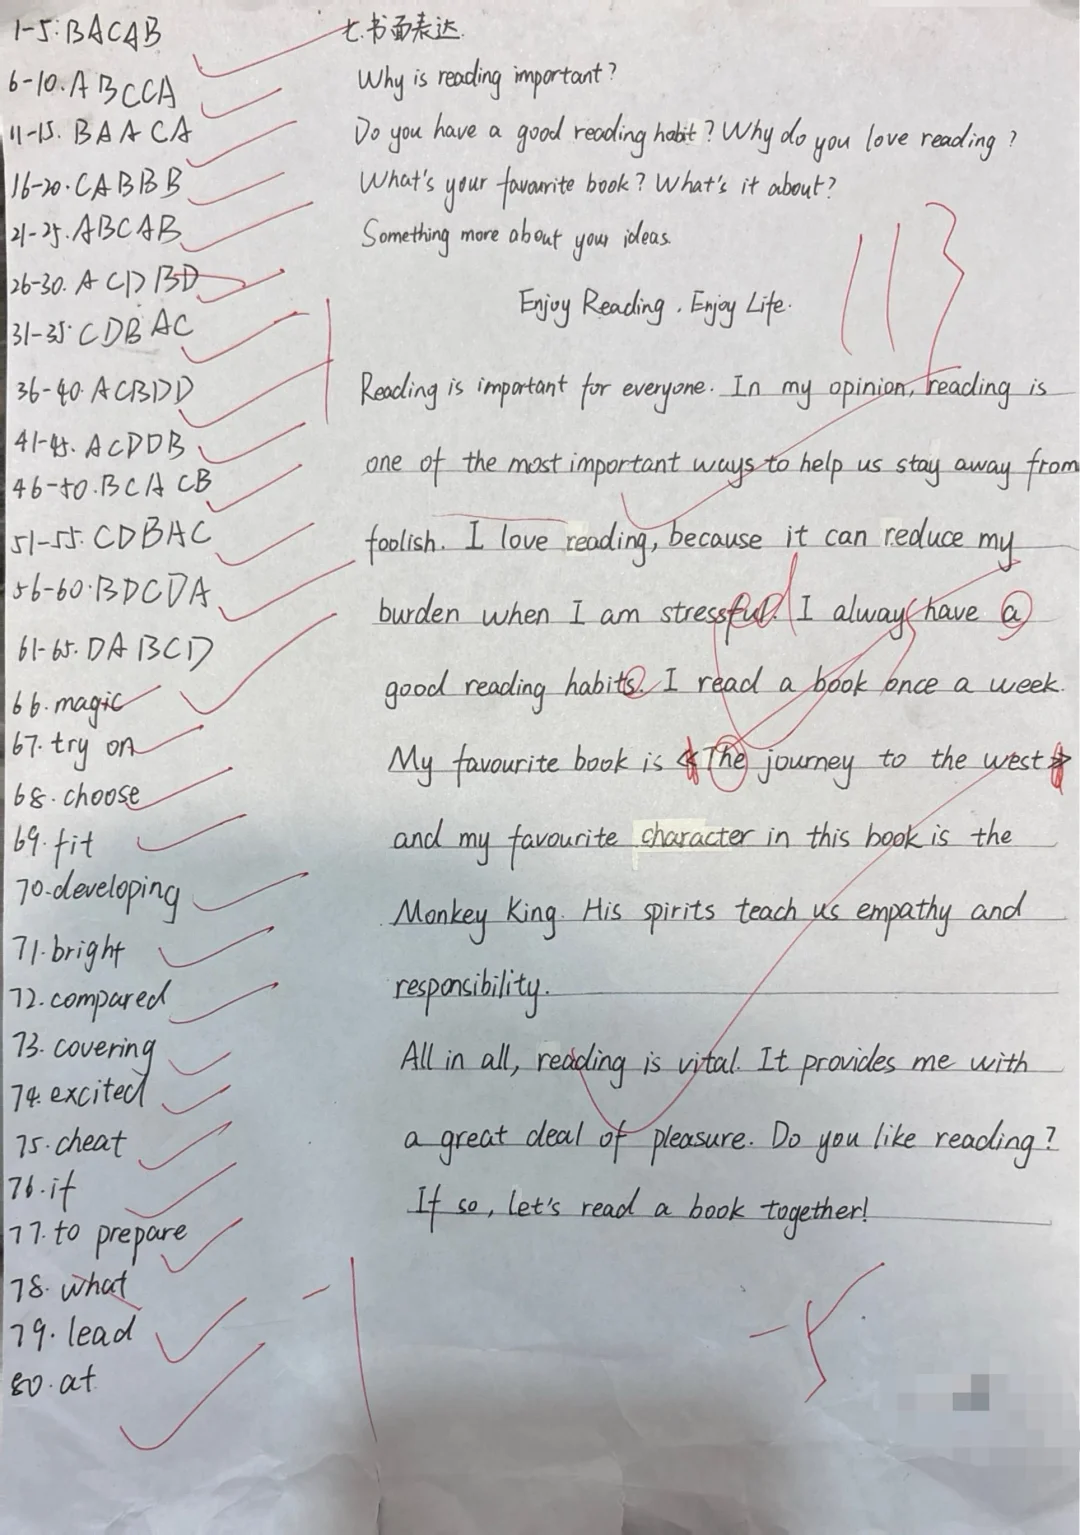 1-5:BACAB
6-10.ABCCA
11-15.BAACA
16-20.CABBB
21-25.ABCAB
26-30.ACDBD
31-35.CDBAC
36-40.ACBDD
41-45.ACDDB
46-50.BCACB
51-55.CDBAC
56-60.BDCDA
61-65.DABCD
66.magic
67.try on
68.choose
69.fit
70.developing
71.bright
72.compared
73.covering
74.excited
75.cheat
76.if
77.to prepare
78.what
79.lead
80.at
七.书面表达.
Why is reading important?
Do you have a good reading habit? Why do you love reading?
What's your favourite book? What's it about?
Something more about your ideas.
113
Enjoy Reading. Enjoy Life.
Reading is important for everyone. In my opinion, reading is
one of the most important ways to help us stay away from
foolish. I love reading, because it can reduce my
burden when I am stressful. I always have a
ed
good reading habits. I read a book once a week.
My favourite book is 《The journey to the west》
and my favourite character in this book is the
Monkey King. His spirits teach us empathy and
responsibility.
All in all, reading is vital. It provides me with
a great deal of pleasure. Do you like reading?
If so, let's read a book together!